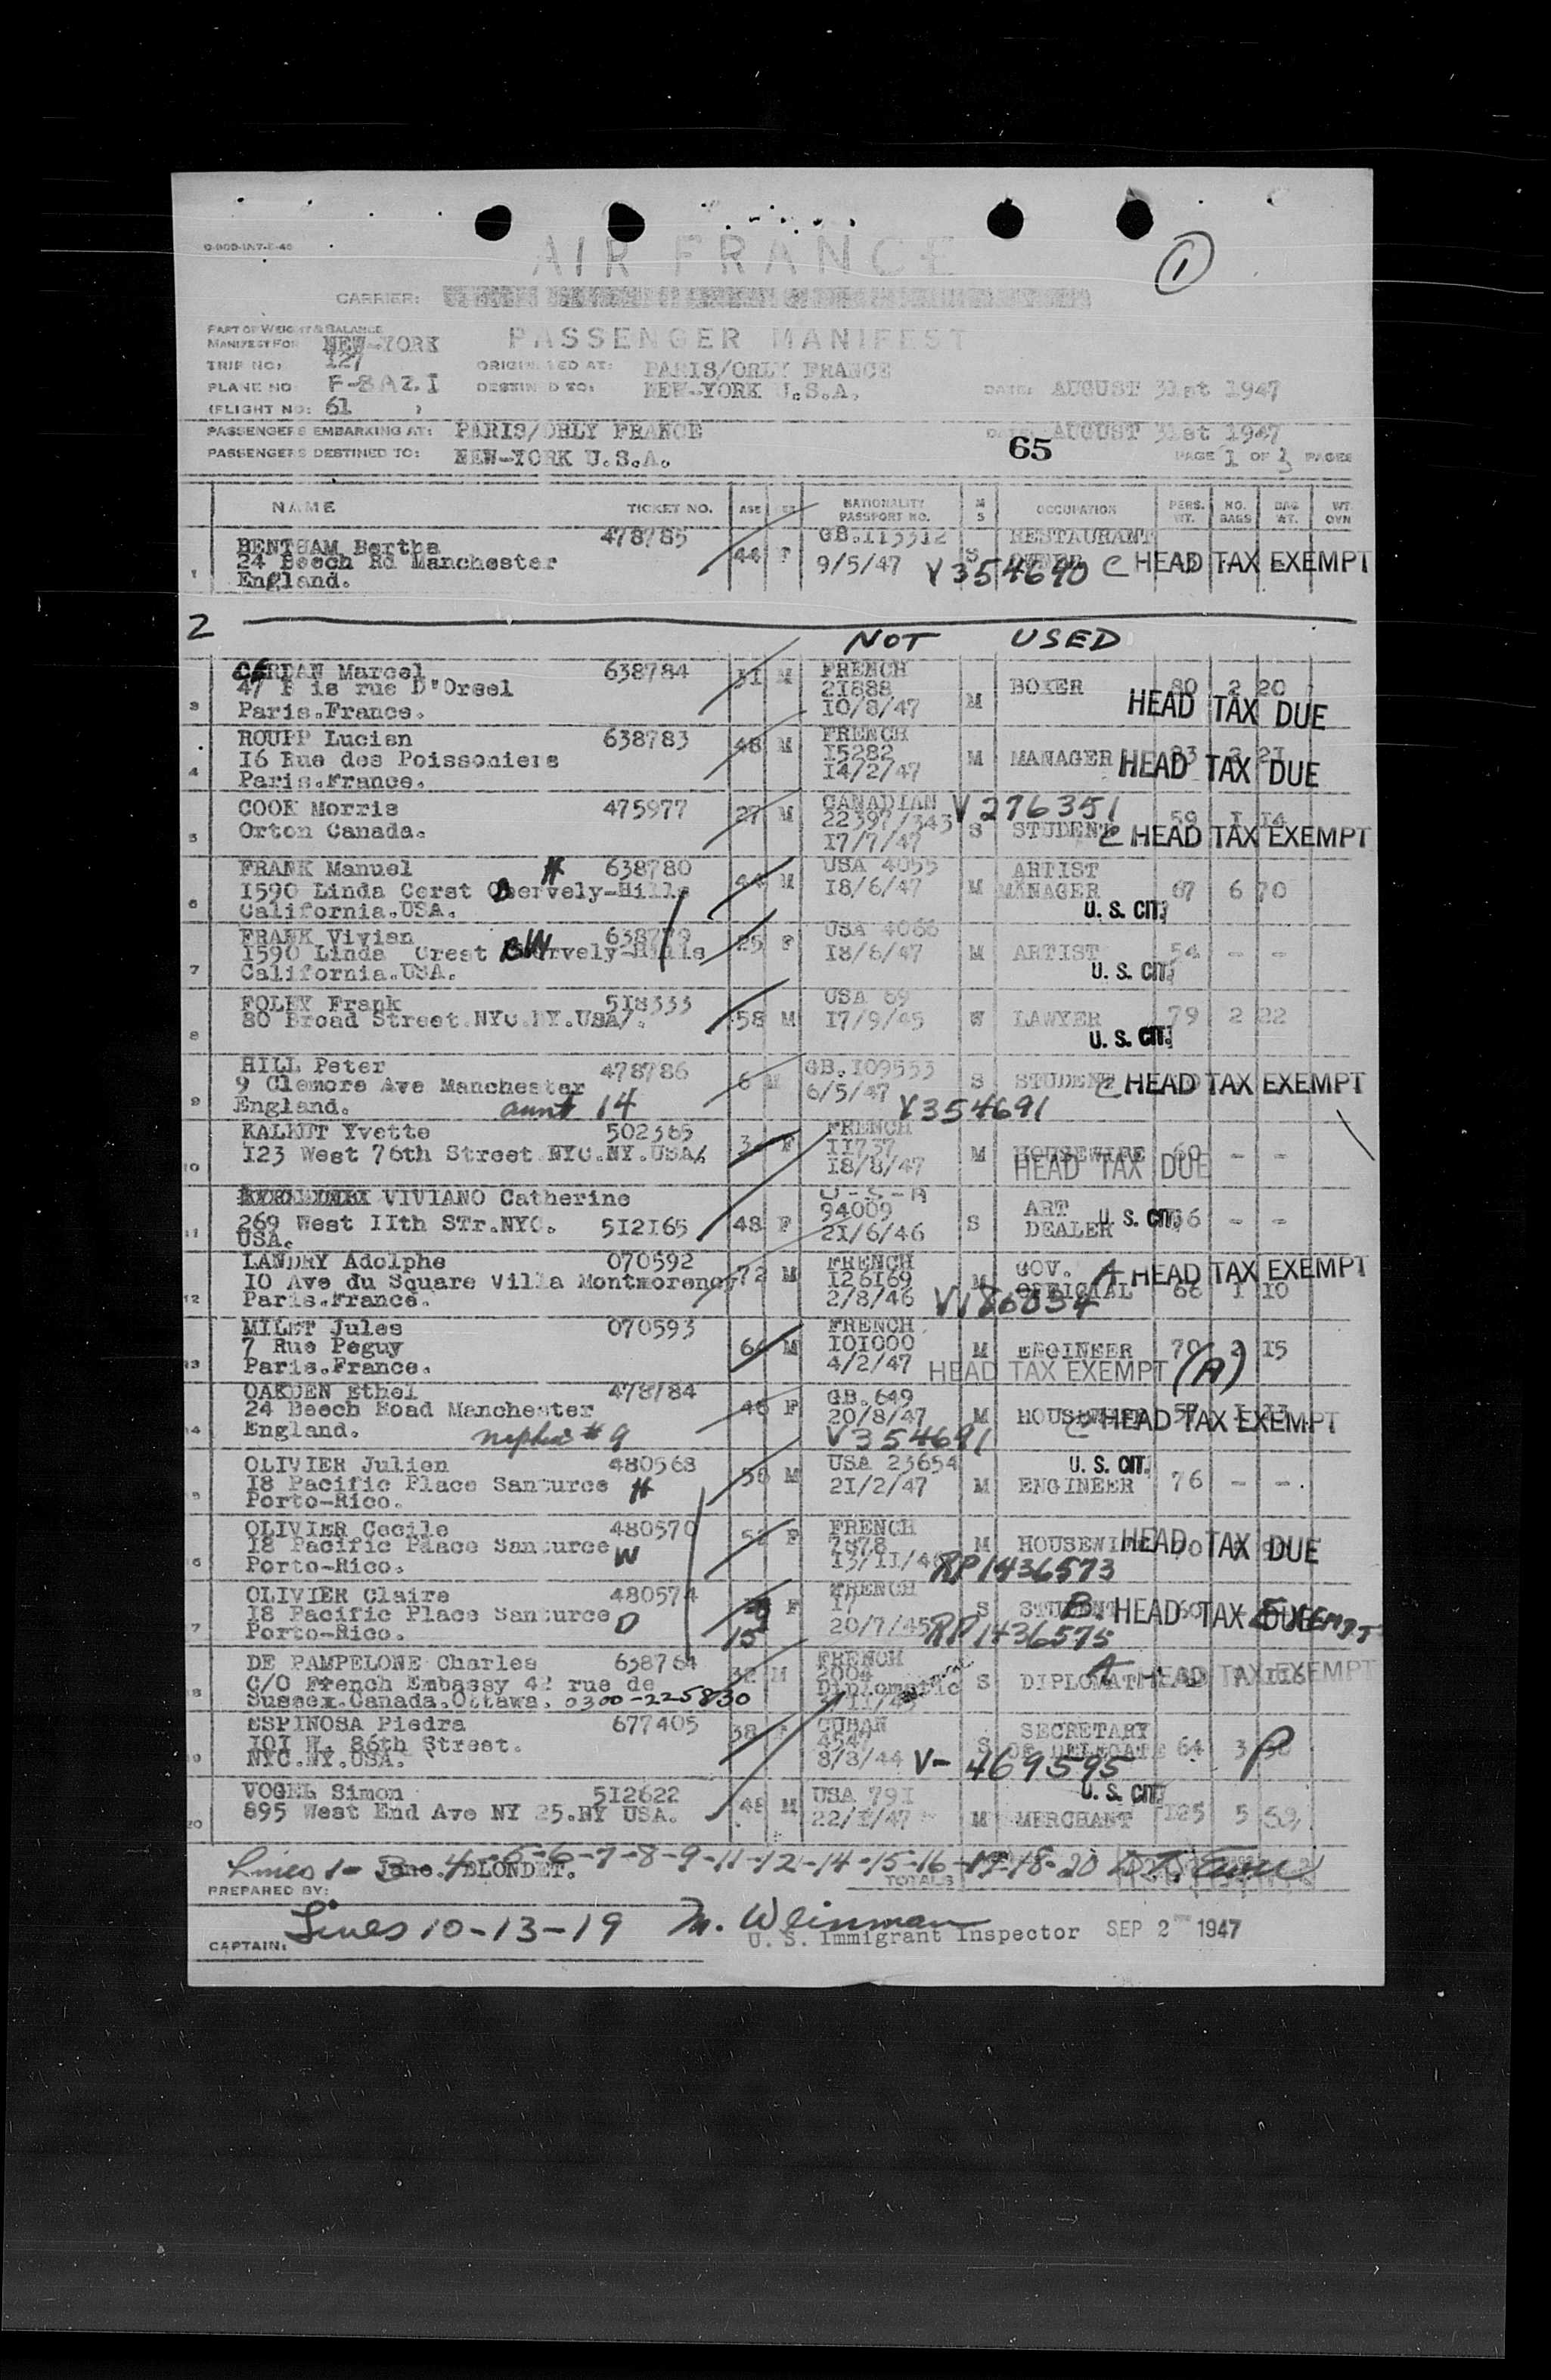 AIR FRANCE
1
CARRIER:
PART OF WEIGHT & BALANCE
MANIFEST FOR NEW-YORK
PASSENGER MANIFEST
TRIP NO: 127
ORIGINATED AT: PARIS/ORLY FRANCE
PLANE NO F-BAZI
DESTINED TO: NEW-YORK U.S.A.
DATE: AUGUST 31st 1947
(FLIGHT NO: 61 )
PASSENGERS EMBARKING AT: PARIS/ORLY FRANCE
DATE: AUGUST 31st 1947
65
PASSENGERS DESTINED TO: NEW-YORK U.S.A.
PAGE I OF 3 PAGES
NAME TICKET NO. AGE SEX NATIONALITY PASSPORT NO. M S OCCUPATION PERS. WT. NO. BAGS BAG WT. WT OVN
BENTHAM Bertha 478785 44 F GB.113312 S RESTAURANT
24 Beech Rd Manchester 9/5/47 V354690 C HEAD TAX EXEMPT
1 England.
2 NOT USED
CERDAN Marcel 638784 31 M FRENCH
47 B is rue D'Orsel 21888 M BOXER 80 2 20
3 Paris.France. 10/8/47 HEAD TAX DUE
ROUPP Lucien 638783 48 M FRENCH
16 Rue des Poissoniers 15282 M MANAGER 83 2 21
4 Paris.France. 14/2/47 HEAD TAX DUE
COOK Morris 475977 27 M CANADIAN V276351
Orton Canada. 22397/343 S STUDENT 59 1 14
5 17/7/47 C HEAD TAX EXEMPT
FRANK Manuel H 638780 44 M USA 4055 ARTIST
1590 Linda Cerst Obervely-Hills 18/6/47 M MANAGER 67 6 70
6 California.USA. U. S. CIT.
FRANK Vivian W 638779 25 F USA 4066
1590 Linda Crest Bervely-Hills 18/6/47 M ARTIST 54 - -
7 California.USA. U. S. CIT.
FOLEY Frank 518333 58 M USA 89
80 Broad Street.NYC.NY.USA/. 17/9/45 W LAWYER 79 2 22
8 U. S. CIT.
HILL Peter 478786 6 M GB.109553 S STUDENT
9 Clemore Ave Manchester 6/5/47 C HEAD TAX EXEMPT
9 England. aunt 14 V354691
KALMUT Yvette 502365 F FRENCH
123 West 76th Street NYC.NY.USA. 11737 M HOUSEWIFE 60 - -
10 18/8/47 HEAD TAX DUE
VIVIANO Catherine U-S-A
269 West IIth STr.NYC. 512165 48 F 94009 S ART DEALER U. S. CIT. 56 - -
11 USA. 21/6/46
LANDRY Adolphe 070592 72 M FRENCH GOV.
10 Ave du Square Villa Montmorency 126169 M OFFICIAL A HEAD TAX EXEMPT
12 Paris.France. 2/8/46 V186834 66 1 10
MILET Jules 070593 M FRENCH
7 Rue Peguy 101000 M ENGINEER 70 2 15
13 Paris.France. 4/2/47 HEAD TAX EXEMPT (A)
OAKDEN Ethel 478784 46 F GB.649
24 Beech Road Manchester 20/8/47 M HOUSEWIFE C HEAD TAX EXEMPT
14 England. nephew #9 V354691
OLIVIER Julien 480568 56 M USA 23654 U. S. CIT.
18 Pacific Place Santurce H 21/2/47 M ENGINEER 76 - -
15 Porto-Rico.
OLIVIER Cecile 480570 52 F FRENCH
18 Pacific Place Santurce W 7878 M HOUSEWIFE HEAD TAX DUE
16 Porto-Rico. RP1436573
OLIVIER Claire 480574 F FRENCH
18 Pacific Place Santurce D 17 S STUDENT B. HEAD TAX DUE EXEMPT
17 Porto-Rico. 15 20/7/45 RP1436575
DE PAMPELONE Charles 638764 32 M FRENCH
C/O French Embassy 42 rue de 2004 S DIPLOMAT A HEAD TAX EXEMPT
18 Sussex.Canada.Ottawa. 0300-225830 Diplomatic
ESPINOSA Piedra 677405 38 F CUBAN SECRETARY
101 W. 86th Street. 4547 S OF DELEGATE 64 3 P
19 NYC.NY.USA. 8/8/44 V-469595
VOGEL Simon 512622 48 M USA 791 U. S. CIT.
895 West End Ave NY 25.NY USA. 22/1/47 M MERCHANT 125 5
20
Lines 1-3-4-5-6-7-8-9-11-12-14-15-16-17-18-20
Jane BLONDET.
PREPARED BY:
TOTALS
Lines 10-13-19 M. Weinman
CAPTAIN:
U. S. Immigrant Inspector SEP 2 1947